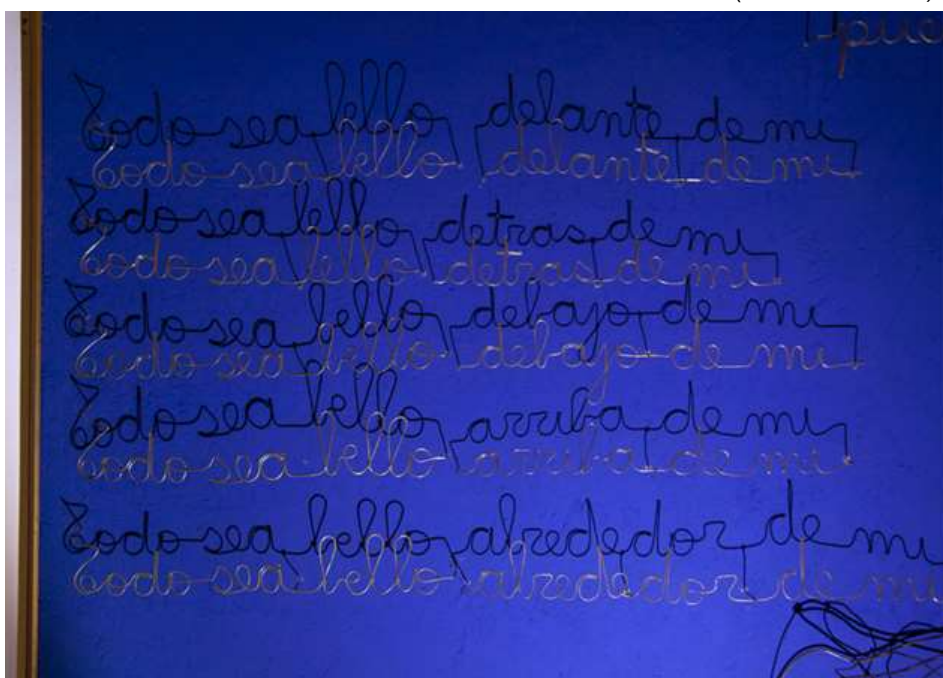 Todo sea bello delante de mi
Todo sea bello detras de mi
Todo sea bello debajo de mi
Todo sea bello arriba de mi
Todo sea bello alrededor de mi